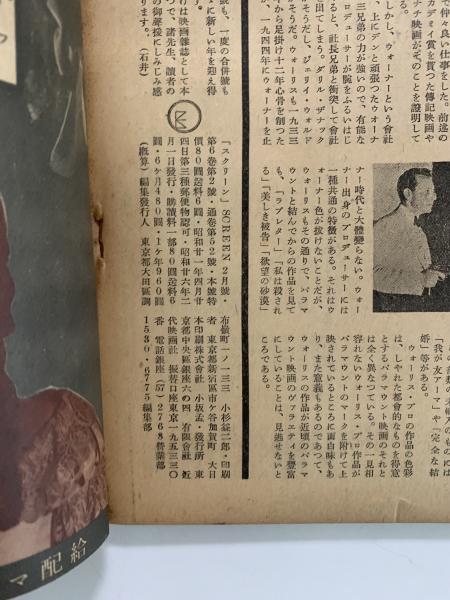 で仲々良い仕事をした。前述の
カデミイ賞を貰つた傳記映画や
ナチ映画がそのことを證明して
る。
しかし、ウォーナーという會社
、上にデンと頑張つたウオーナ
三兄弟の力が强いので、有能な
ロデューサーが腕をふるいはじ
ると、社長兄弟と衝突して會社
出てしまう。ダリル・ザナック
そうだし、ジェリイ・ウォルド
がそうだ。ウォーリスも一九三三
から足掛け十二年心骨を削つた
、一九四四年にウオーナーを止
ナー時代と大體變らない。ウォー
ナー出身のプロデューサーには
一種共通の特徴がある。それはウ
ォーナー色が拔けないことだが、
ウォーリスもその通りで、パラマ
ウントと結んでからの作品を見て
も、「ラブレター」「私は殺され
る」「美しき被告」「欲望の砂漠」
「我が友アーマ」や「完全な結
婚」等がある。
ウォーリス・プロの作品の色彩
は、しやれた都會的なものを得意
とするパラマウント映画のそれと
は全く異なつている。その一見相
容れないウォーリス・プロ作品が
パラマウントのマークを附けて上
映されているところに面白味もあ
り、また意義もあるのであつて、
ウォーリスの作品が近頃のパラマ
ウント映画のヴァラエティを豊富
にしていることは、見逃せないと
ころである。
號も、一度の合併號も
メに新しい年を迎え得
す。
けは映画雜誌として本
つで、諸先生、讀者の
の御聲援にしみじみ感
ります。(石井)
「スクリーン」SCREEN 2月號・
第6卷第2號・通卷第52號・本號特
價80圓送料6圓・昭和廿一年四月廿
四日第三種郵便物認可・昭和廿六年二
月一日發行・購讀料一部80圓送料6
圓・6ケ月480圓・1ケ年960圓
(概算)編集發行人 東京都大田區調
布嶺町一ノ一三三 小杉益二郎・印刷
者 東京都新宿區市ケ谷加賀町 大日
本印刷株式會社 小坂孟・發行所 東
京都中央區銀座六の四 有限會社 近
代映画社 振替口座東京一九五三三〇
番 電話銀座(57)2768營業部
1536・6775編集部
給配 マ